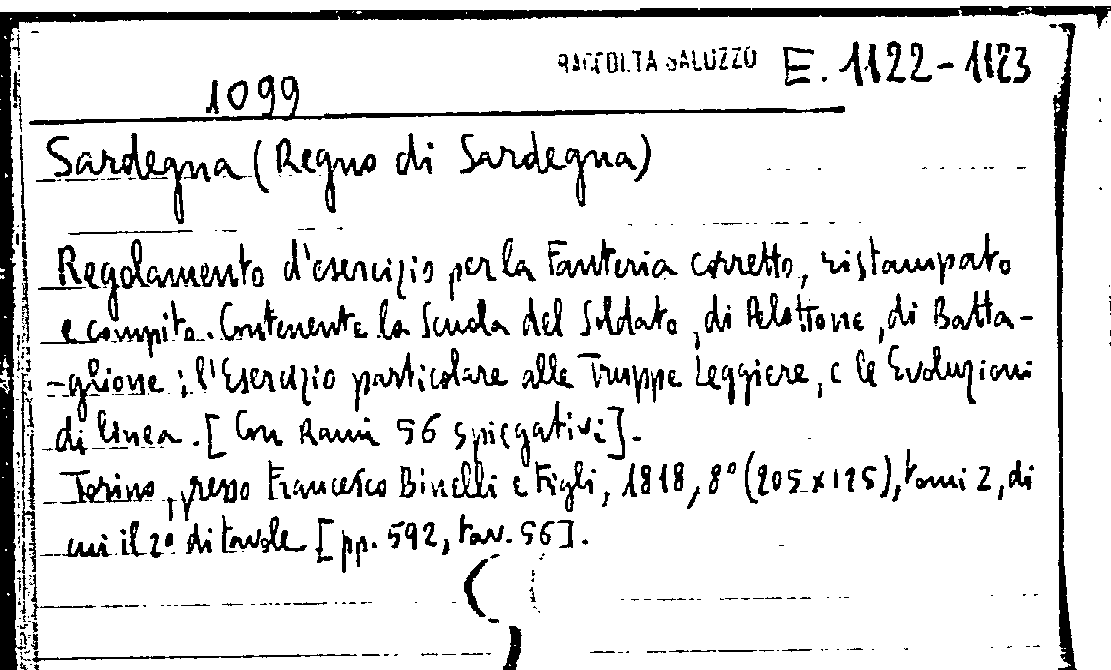 RACCOLTA SALUZZO E. 1122-1123
1099
Sardegna (Regno di Sardegna)
Regolamento d'esercizio per la Fanteria corretto, ristampato
e compito. Contenente la Scuola del Soldato, di Pelottone, di Batta-
-glione; l'Esercizio particolare alle Truppe Leggiere, e le Evoluzioni
di linea. [Con Rami 56 spiegativi].
Torino, presso Francesco Binelli e Figli, 1818, 8° (205x125), tomi 2, di
cui il 2° di tavole [pp. 592, tav. 56].